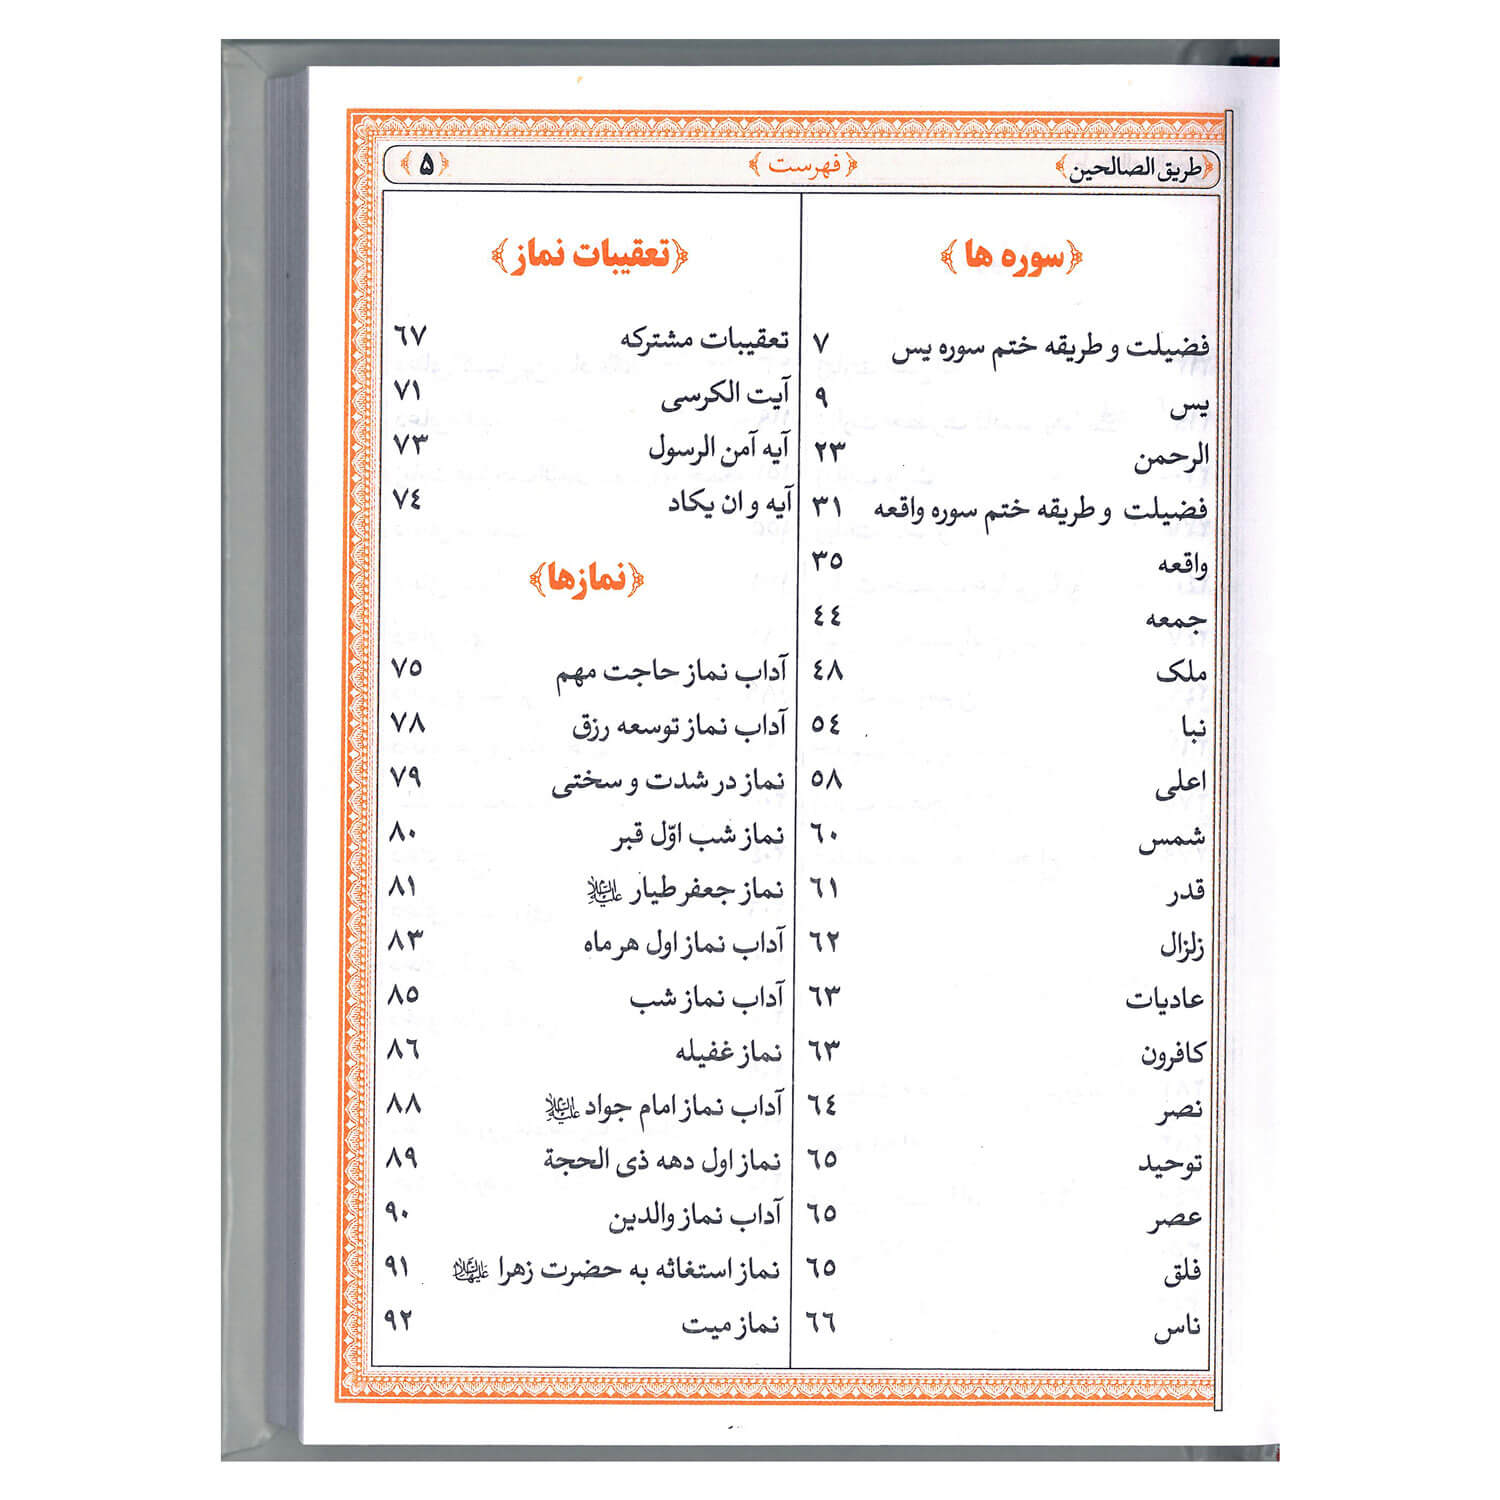 طریق الصالحین فهرست ۵
سوره ها
فضیلت و طریقه ختم سوره یس ۷
یس ۹
الرحمن ۲۳
فضیلت و طریقه ختم سوره واقعه ۳۱
واقعه ۳۵
جمعه ٤٤
ملک ٤۸
نبا ٥٤
اعلی ٥۸
شمس ٦۰
قدر ٦۱
زلزال ٦۲
عادیات ٦۳
کافرون ٦۳
نصر ٦٤
توحید ٦٥
عصر ٦٥
فلق ٦٥
ناس ٦٦
تعقیبات نماز
تعقیبات مشترکه ٦۷
آیت الکرسی ۷۱
آیه آمن الرسول ۷۳
آیه و ان یکاد ۷٤
نمازها
آداب نماز حاجت مهم ۷٥
آداب نماز توسعه رزق ۷۸
نماز در شدت و سختی ۷۹
نماز شب اوّل قبر ۸۰
نماز جعفر طیار علیه‌السلام ۸۱
آداب نماز اول هر ماه ۸۳
آداب نماز شب ۸٥
نماز غفیله ۸٦
آداب نماز امام جواد علیه‌السلام ۸۸
نماز اول دهه ذی الحجة ۸۹
آداب نماز والدین ۹۰
نماز استغاثه به حضرت زهرا علیهاالسلام ۹۱
نماز میت ۹۲